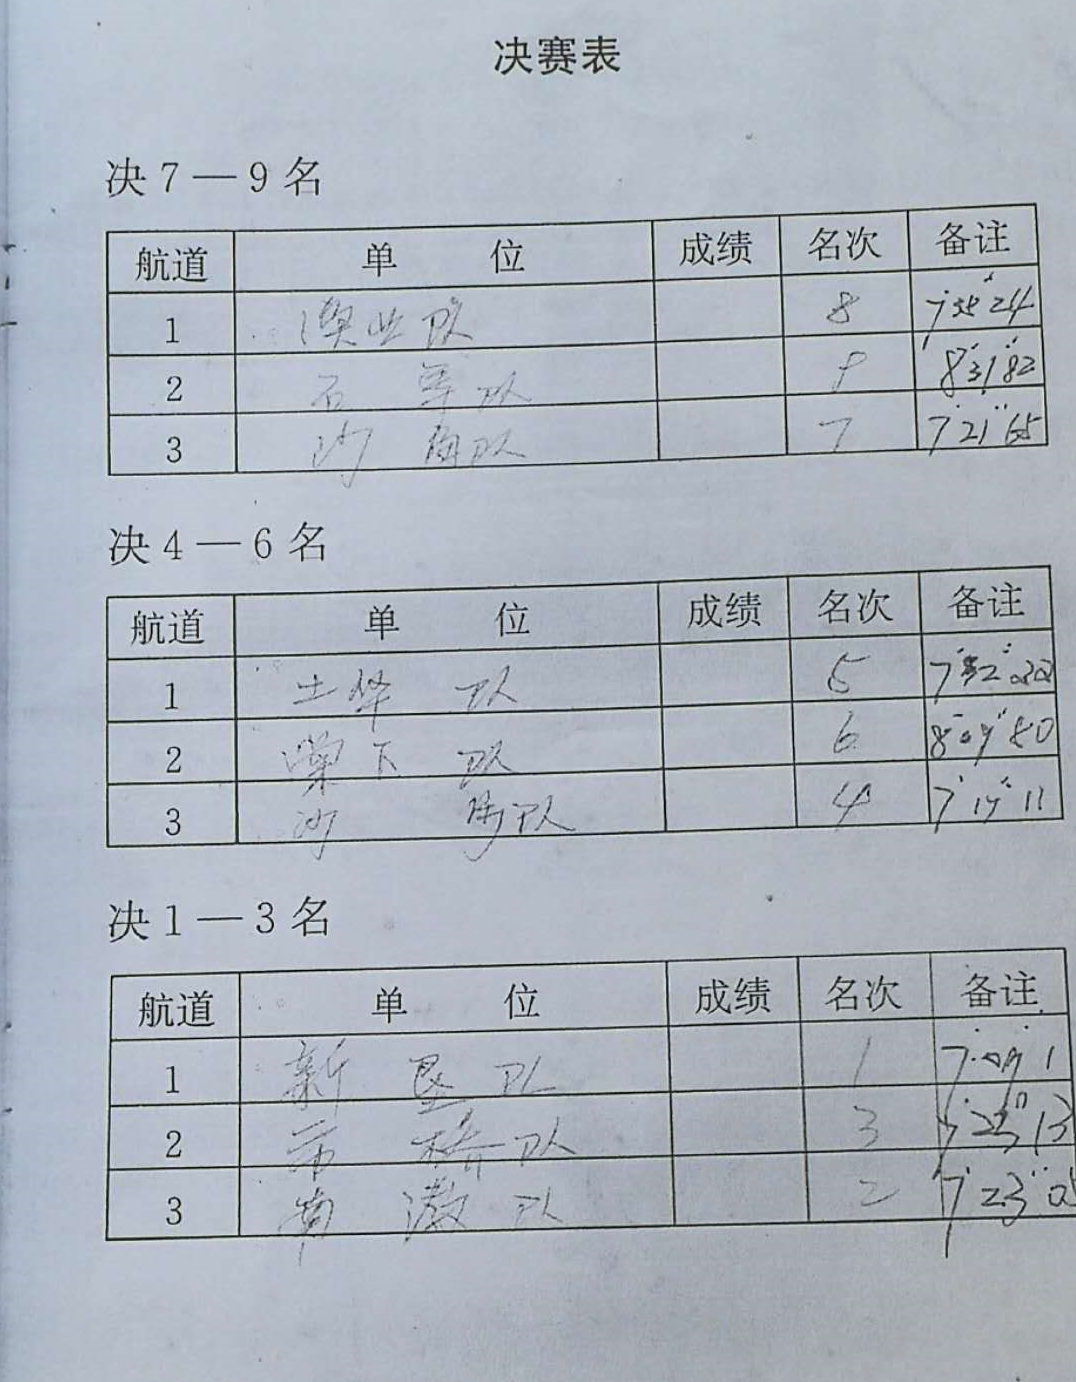 决赛表
决7—9名
航道 单 位 成绩 名次 备注
1 渔业队 8 7'38"24
2 石 队 9 8'31"82
3 沙 队 7 7'21"65
决4—6名
航道 单 位 成绩 名次 备注
1 土华 队 5 7'52"
2 棠下 队 6 8'09"80
3 沙 队 4 7'19"11
决1—3名
航道 单 位 成绩 名次 备注
1 新 垦 队 1 7'09"1
2 市 桥 队 3 7'25"13
3 南 队 2 7'23"05